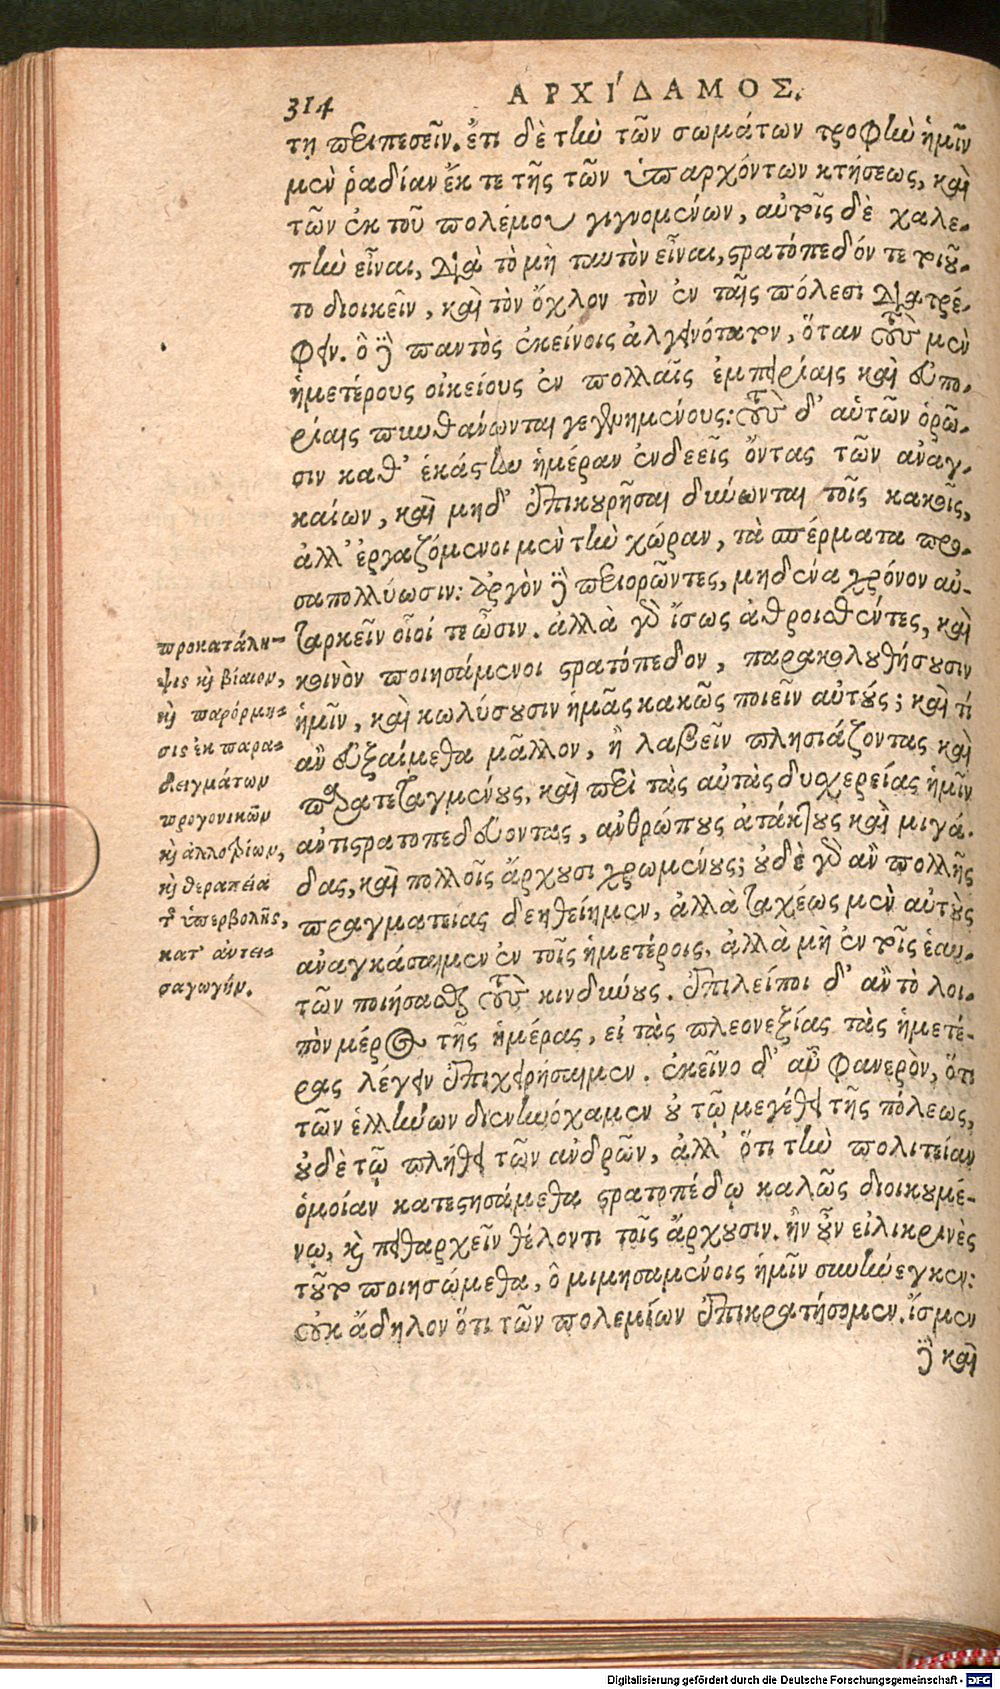 314
ΑΡΧΙ´ΔΑΜΟΣ.
τῃ περιπεσεῖν. ἔτι δὲ τὴν τῶν σωμάτων τροφὴν ἡμῖν
μὲν ῥαδίαν ἔκ τε τῆς τῶν ὑπαρχόντων κτήσεως, καὶ
τῶν ἐκ τοῦ πολέμου γιγνομένων, αὐτοῖς δὲ χαλε-
πὴν εἶναι, διὰ τὸ μὴ ταυτὸν εἶναι, στρατόπεδόν τε τοιοῦ-
το διοικεῖν, καὶ τὸν ὄχλον τὸν ἐν ταῖς πόλεσι διατρέ-
φειν. ὃ δὲ παντὸς ἐκείνοις ἀλγεινότατον, ὅταν τοὺς μὲν
ἡμετέρους οἰκείους ἐν πολλαῖς ἐμπειρίαις καὶ εὐπο-
ρίαις πυνθάνωνται γεγενημένους: τοὺς δ' αὑτῶν ὁρῶ-
σιν καθ' ἑκάστην ἡμέραν ἐνδεεῖς ὄντας τῶν ἀναγ-
καίων, καὶ μηδ' ἐπικουρῆσαι δύνωνται τοῖς κακοῖς,
ἀλλ' ἐργαζόμενοι μὲν τὴν χώραν, τὰ σπέρματα προ-
σαπολλύωσιν: ἀργὸν δὲ περιορῶντες, μηδένα χρόνον αὐ-
ταρκεῖν οἷοί τε ὦσιν. ἀλλὰ γὰρ ἴσως ἀθροισθέντες, καὶ
κοινὸν ποιησάμενοι στρατόπεδον, παρακολουθήσουσιν
ἡμῖν, καὶ κωλύσουσιν ἡμᾶς κακῶς ποιεῖν αὐτούς; καὶ τί
ἂν εὐξαίμεθα μᾶλλον, ἢ λαβεῖν πλησιάζοντας καὶ
παρατεταγμένους, καὶ περὶ τὰς αὐτὰς δυσχερείας ἡμῖν
ἀντιστρατοπεδεύοντας, ἀνθρώπους ἀτάκτους καὶ μιγά-
δας, καὶ πολλοῖς ἄρχουσι χρωμένους; οὐδὲ γὰρ ἂν πολλῆς
πραγματείας δεηθείημεν, ἀλλὰ ταχέως μὲν αὐτοὺς
ἀναγκάσαιμεν ἐν τοῖς ἡμετέροις, ἀλλὰ μὴ ἐν τοῖς ἑαυ-
τῶν ποιήσασθαι τοὺς κινδύνους. ἐπιλείποι δ' ἂν τὸ λοι-
πὸν μέρος τῆς ἡμέρας, εἰ τὰς πλεονεξίας τὰς ἡμετέ-
ρας λέγειν ἐπιχειρήσαιμεν. ἐκεῖνο δ' αὖ φανερὸν, ὅτι
τῶν ἑλλήνων διενηνόχαμεν οὐ τῷ μεγέθει τῆς πόλεως,
οὐδὲ τῷ πλήθει τῶν ἀνδρῶν, ἀλλ' ὅτι τὴν πολιτείαν
ὁμοίαν κατεστησάμεθα στρατοπέδῳ καλῶς διοικουμέ-
νῳ, καὶ πειθαρχεῖν θέλοντι τοῖς ἄρχουσιν. ἢν οὖν εἰλικρινὲς
τοῦτο ποιησώμεθα, ὃ μιμησαμένοις ἡμῖν συνήνεγκεν:
οὐκ ἄδηλον ὅτι τῶν πολεμίων ἐπικρατήσομεν. ἴσμεν
δὲ καὶ
προκατάλη-
ψις καὶ βίαιον,
καὶ παρόρμη-
σις ἐκ παρα-
δειγμάτων
προγονικῶν
καὶ ἀλλοτρίων,
καὶ θεραπεία
τῆς ὑπερβολῆς,
κατ' ἀντει-
σαγωγήν.
Digitalisierung gefördert durch die Deutsche Forschungsgemeinschaft - DFG